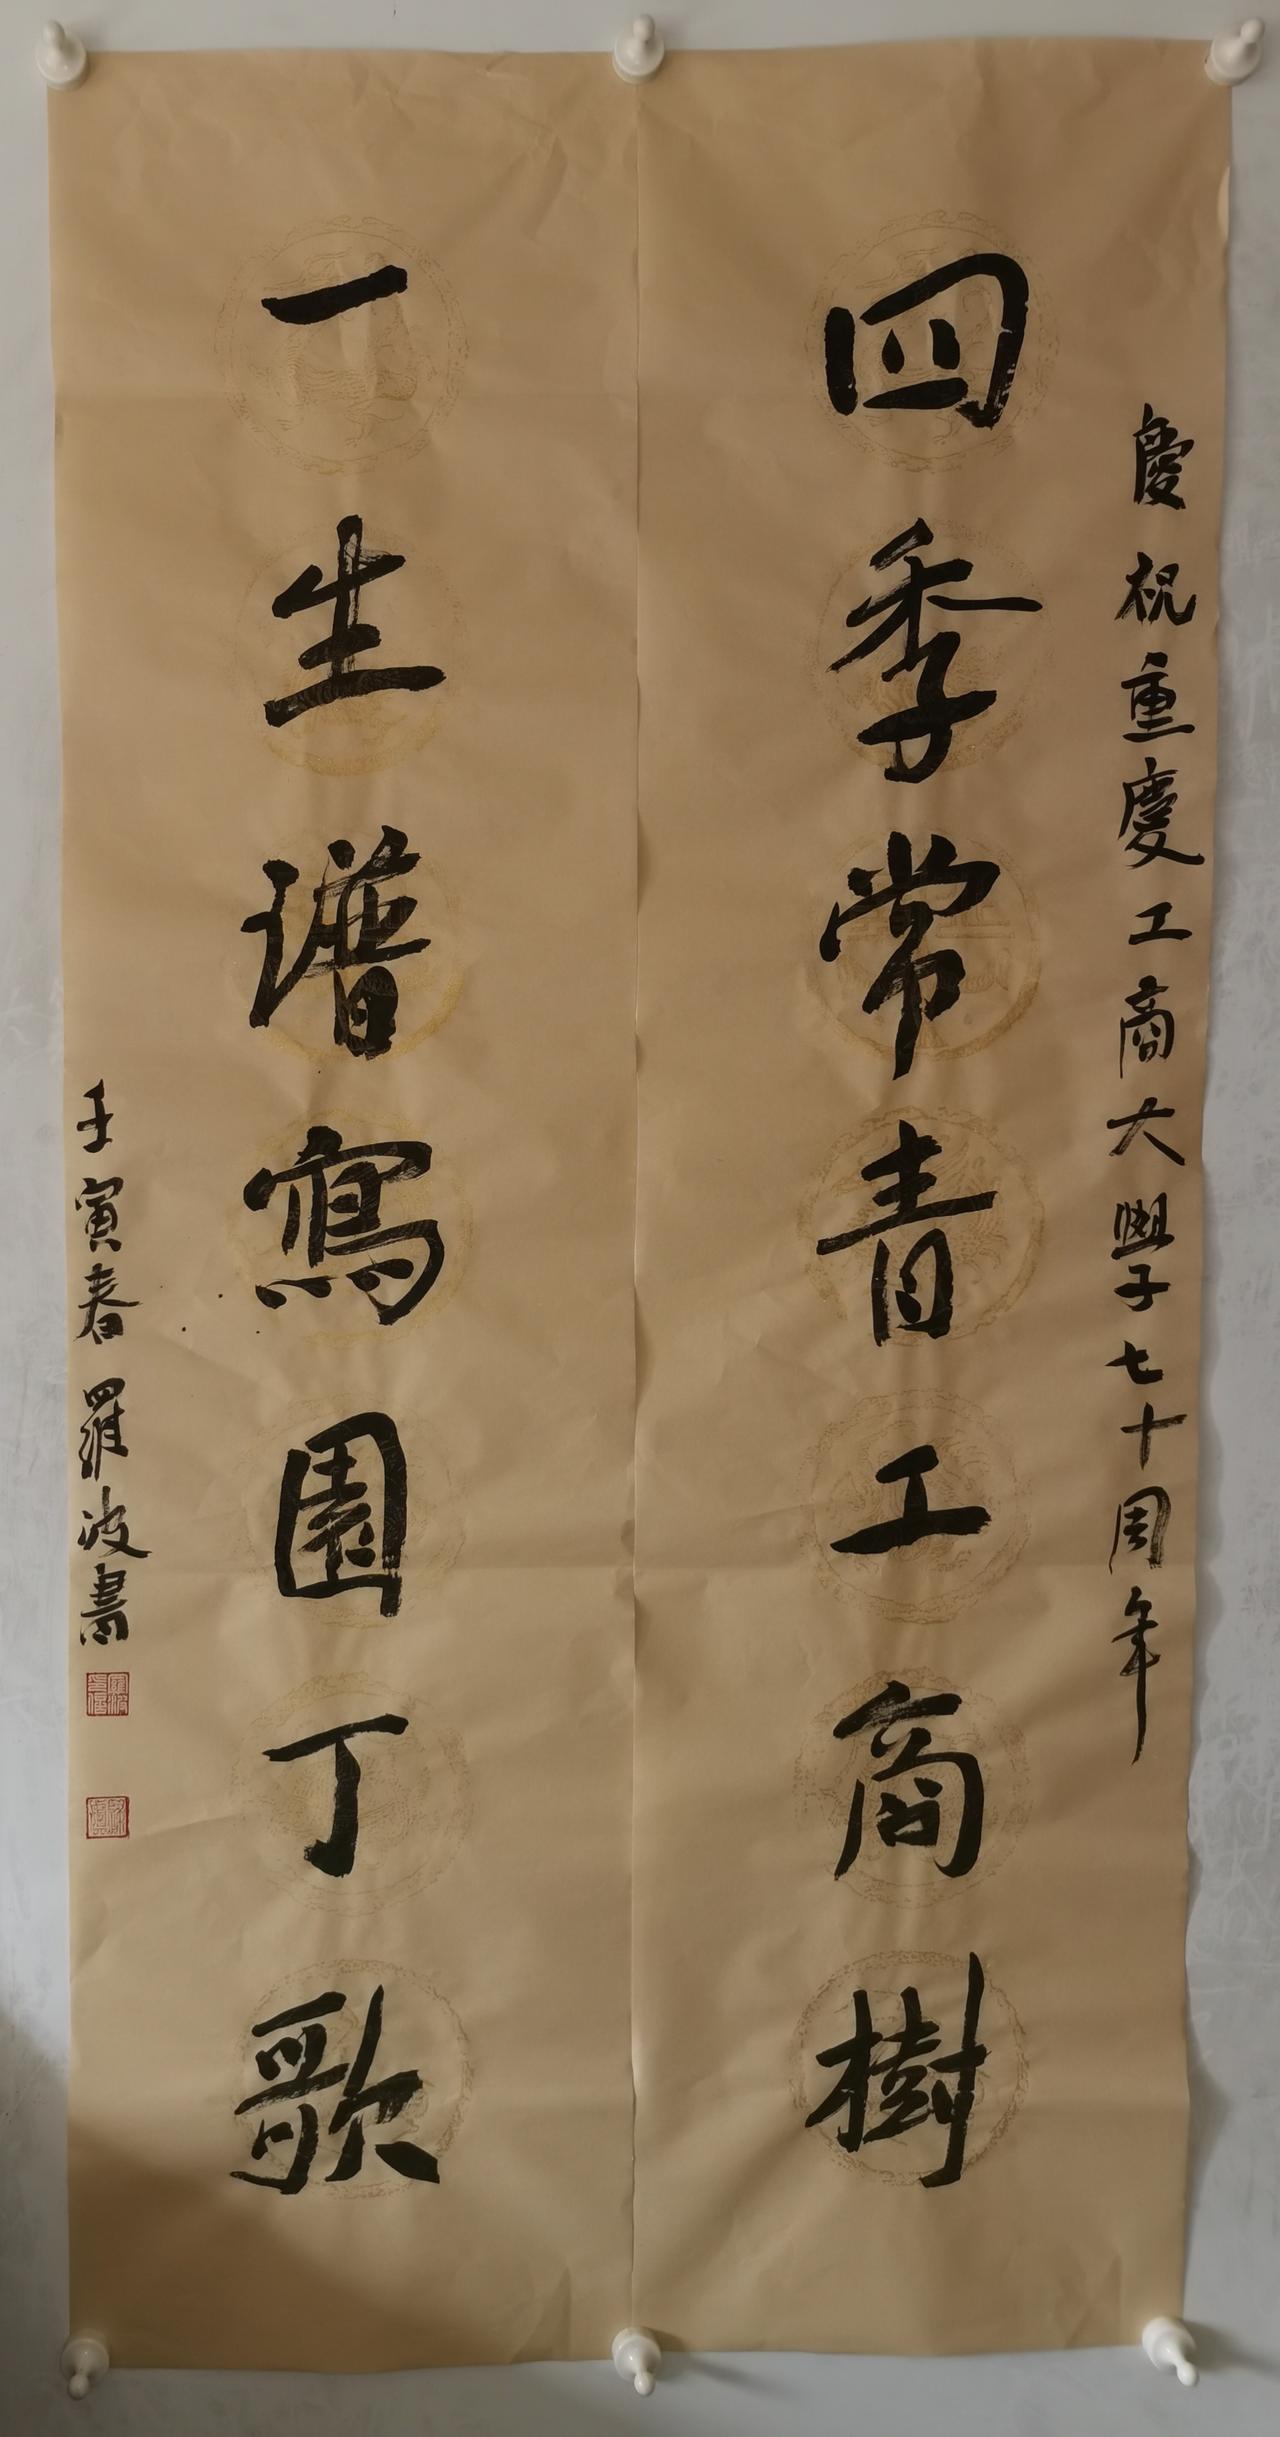 慶祝重慶工商大學七十周年
四季常青工商樹
一生譜寫園丁歌
壬寅春羅波書
羅波